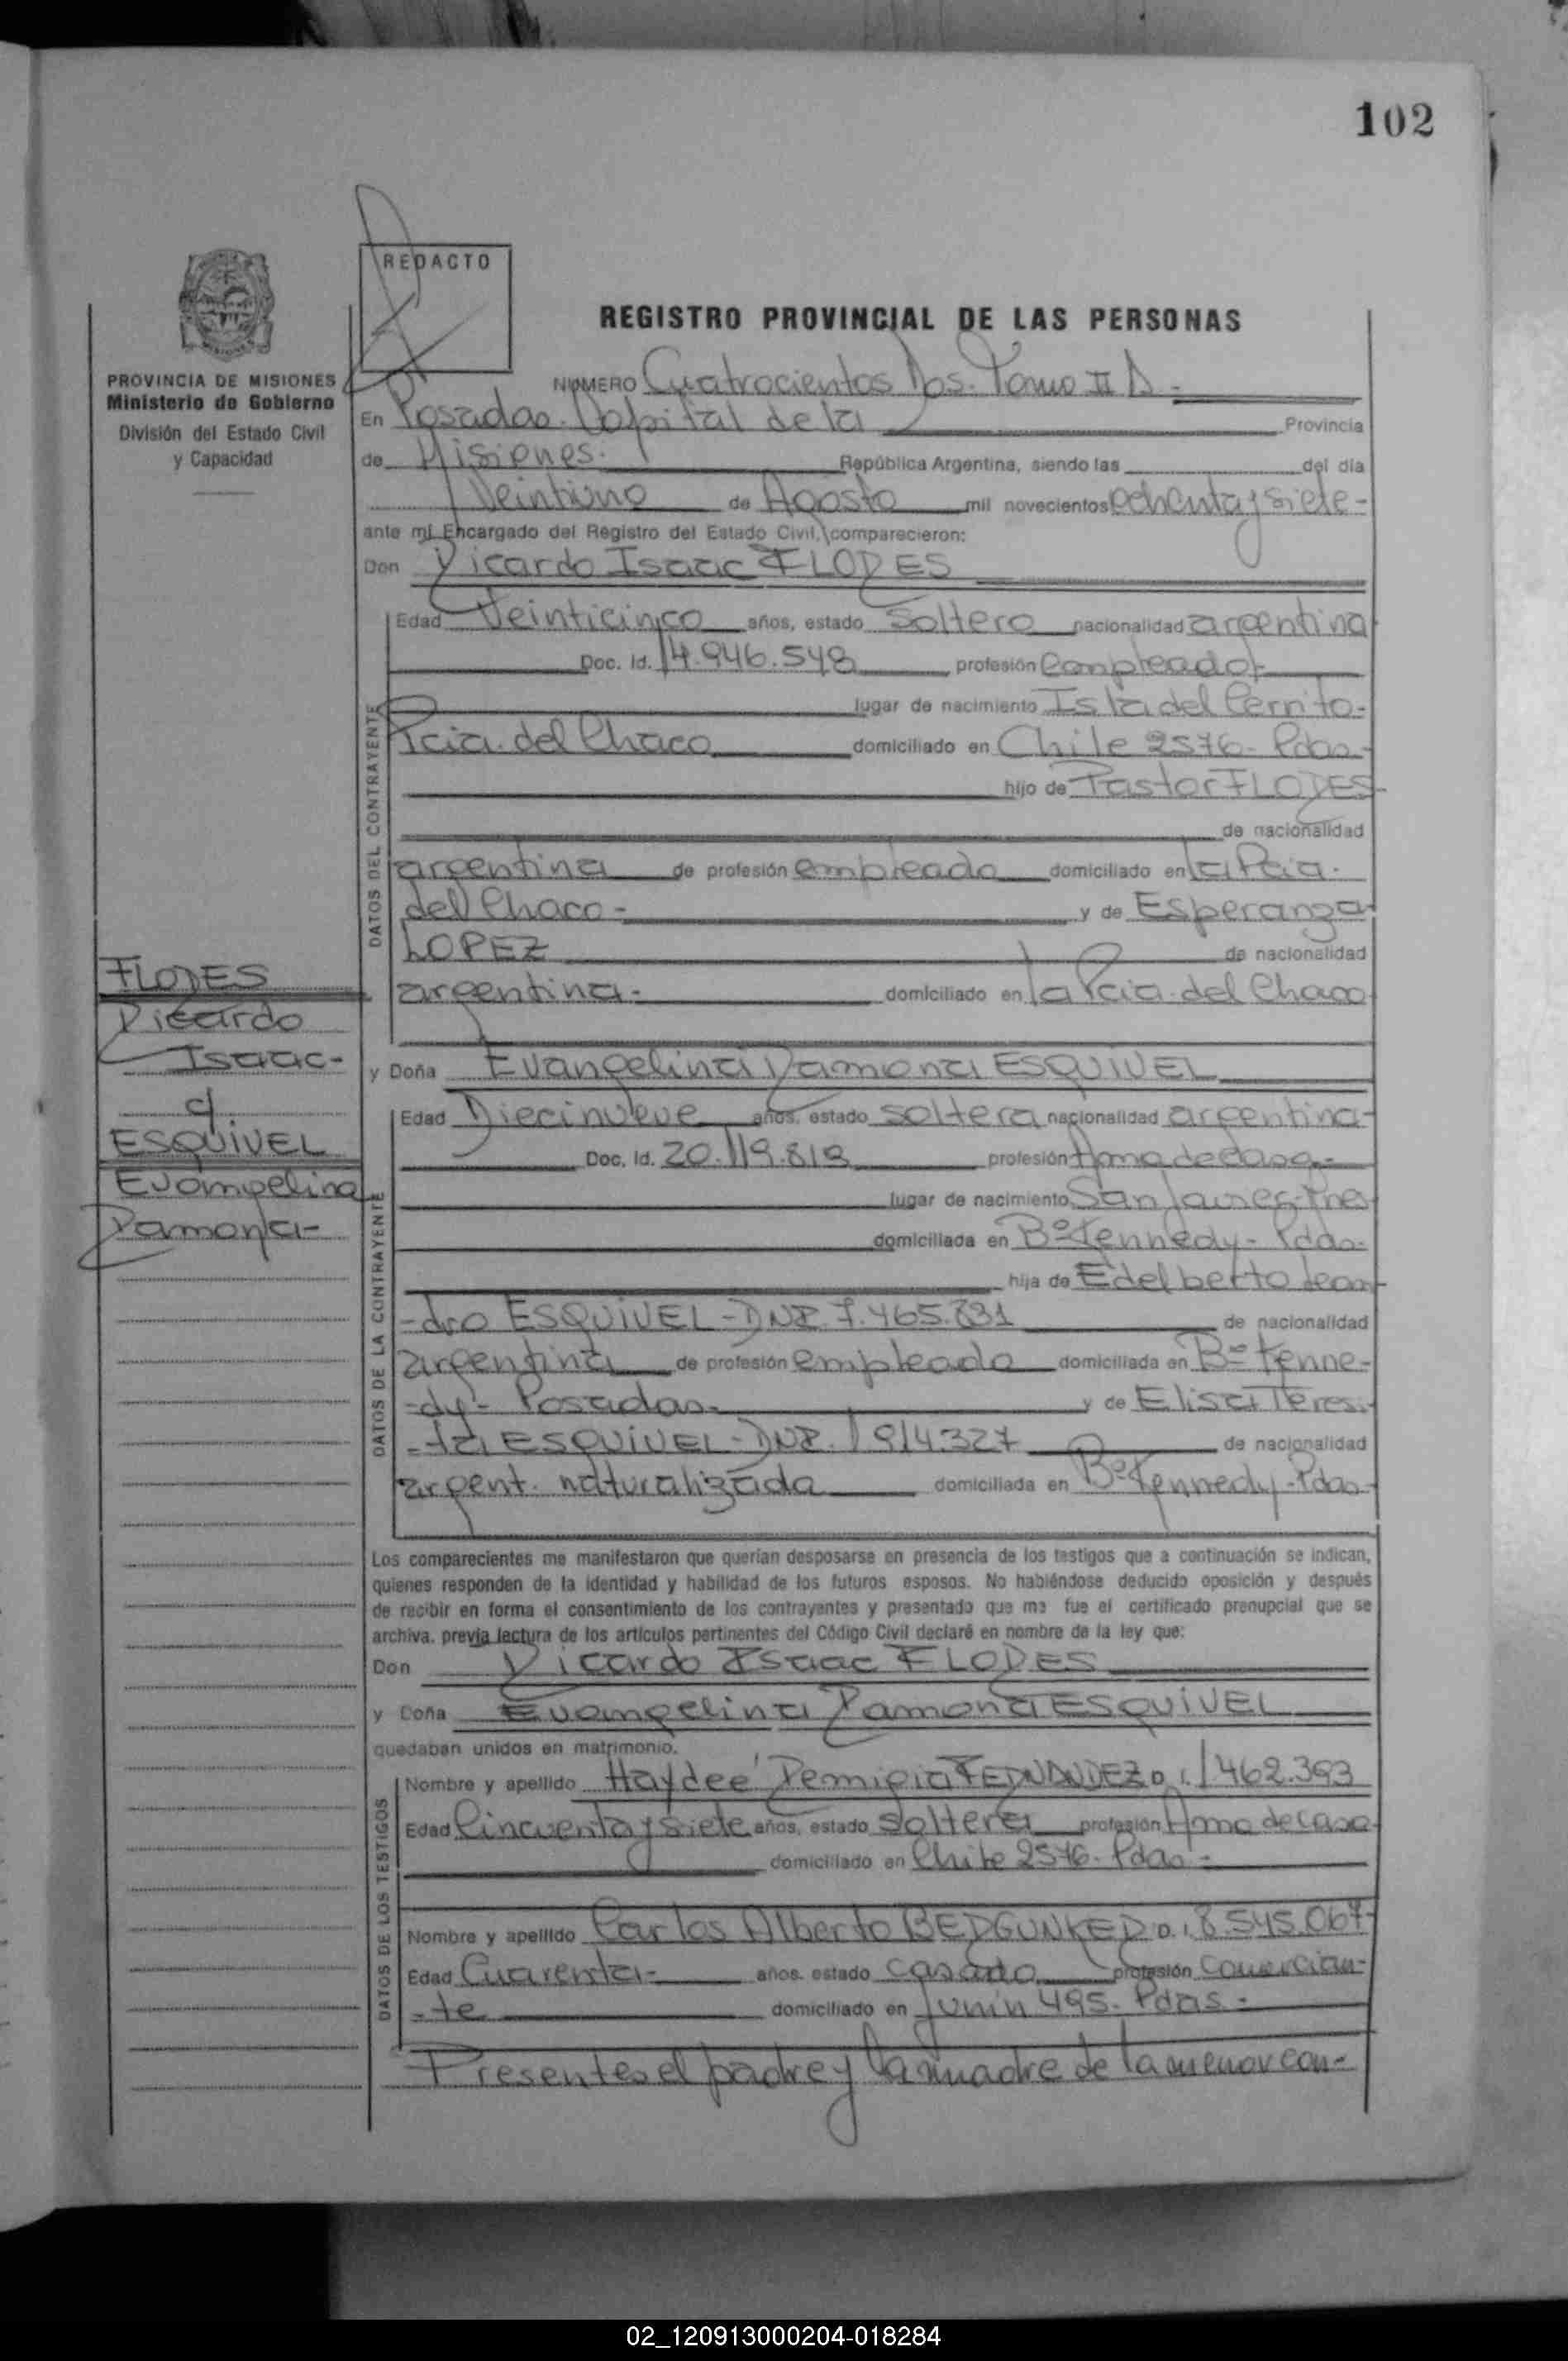 102
REDACTO
REGISTRO PROVINCIAL DE LAS PERSONAS
PROVINCIA DE MISIONES
Ministerio de Gobierno
División del Estado Civil
y Capacidad
NUMERO Cuatrocientos Dos. Tomo II D.-
En Posadas. Capital de la Provincia
de Misiones. República Argentina, siendo las del día
Veintiuno de Agosto mil novecientos ochenta y siete-
ante mí Encargado del Registro del Estado Civil, comparecieron:
Don Ricardo Isaac FLORES
Edad Veinticinco años, estado soltero nacionalidad argentina
Doc. Id. 14.946.548 profesión empleado-
lugar de nacimiento Isla del Cerrito-
Pcia. del Chaco domiciliado en Chile 2576- Pdas-
hijo de Pastor FLORES
de nacionalidad
argentina de profesión empleado domiciliado en la Pcia.
del Chaco- y de Esperanza
LOPEZ de nacionalidad
argentina- domiciliado en la Pcia. del Chaco
DATOS DEL CONTRAYENTE
FLORES
Ricardo
Isaac-
c/
ESQUIVEL
Evangelina
Ramona-
y Doña Evangelina Ramona ESQUIVEL
Edad Diecinueve años, estado soltera nacionalidad argentina-
Doc. Id. 20.119.819 profesión Ama de casa-
lugar de nacimiento San
domiciliada en Bº Kennedy- Pdas-
hija de Edelberto Lean-
-dro ESQUIVEL- DNI. 7.465.831 de nacionalidad
argentina de profesión empleado domiciliada en Bº Kenne-
-dy- Posadas. y de Elisa Teresi-
-ta ESQUIVEL- DNI. 1914327 de nacionalidad
argent. naturalizada domiciliada en Bº Kennedy-Pdas-
DATOS DE LA CONTRAYENTE
Los comparecientes me manifestaron que querían desposarse en presencia de los testigos que a continuación se indican,
quienes responden de la identidad y habilidad de los futuros esposos. No habiéndose deducido oposición y después
de recibir en forma el consentimiento de los contrayentes y presentado que me fue el certificado prenupcial que se
archiva. previa lectura de los artículos pertinentes del Código Civil declaré en nombre de la ley que:
Don Ricardo Isaac FLORES
y Doña Evangelina Ramona ESQUIVEL
quedaban unidos en matrimonio.
Nombre y apellido Haydeé Remigia FERNANDEZ D.I. 1462.393
Edad Cincuenta y siete años, estado soltera profesión Ama de casa
domiciliado en Chile 2576- Pdas-
Nombre y apellido Carlos Alberto D.I. 8.545.067-
Edad Cuarenta- años. estado casado profesión comercian-
-te domiciliado en Junín 495- Pdas-
DATOS DE LOS TESTIGOS
Presentes el padre y la madre de la menor con-
02_120913000204-018284